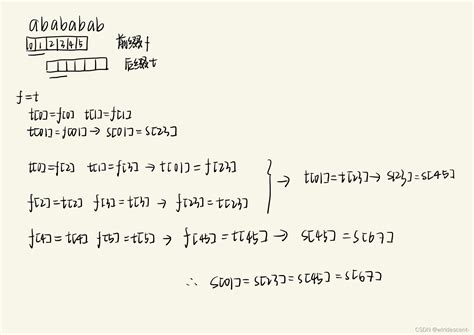 abababab
0 1 2 3 4 5 前缀f
后缀t
f=t
t[0]=f[0] t[1]=f[1]
t[01]=f[01]→S[01]=S[23]
t[0]=f[2] t[1]=f[3]→t[01]=f[23]
→t[01]=t[23]→S[23]=S[45]
f[2]=t[2] f[3]=t[3]→f[23]=t[23]
f[4]=t[4] f[5]=t[5]→f[45]=t[45]→S[45]=S[67]
∴S[01]=S[23]=S[45]=S[67]